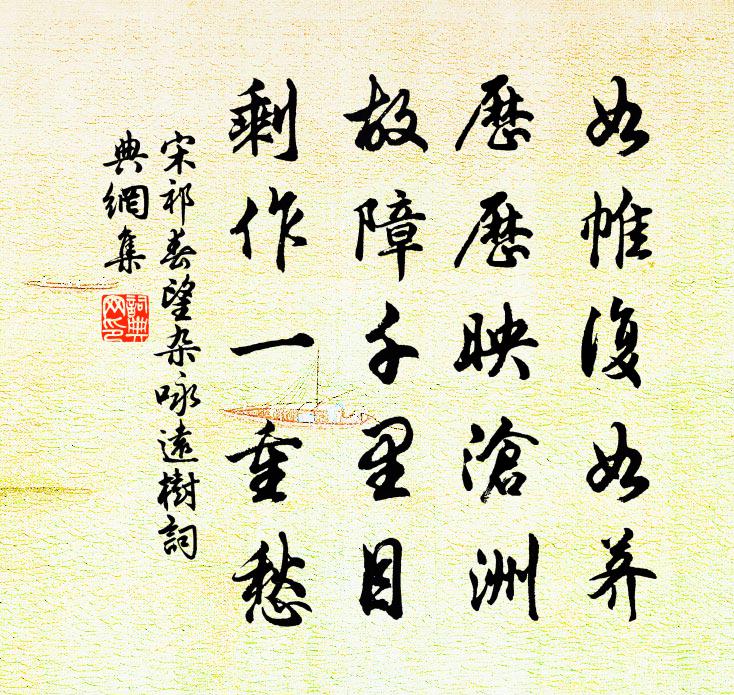 如帷復如荠
歷歷映滄洲
故障千里目
剩作一重愁
宋祁春望杂咏遠樹詞
典網集
詞典
网印